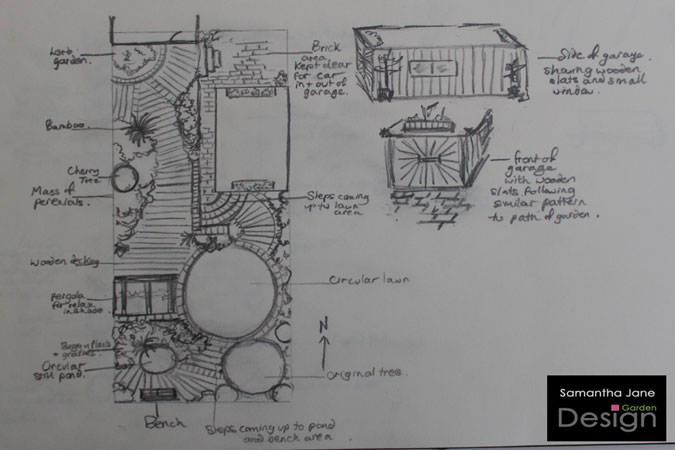 garden.
Brick
area
kept clear
for car
in + out of
garage.
Side of garage
showing wooden
slats and small
window.
Bamboo
Cherry
Tree
Mass of
perenials.
front of
garage
with wooden
slats. following
similar pattern
to path of garden.
Steps coming
up to lawn
area
wooden decking
pergola
for relax
in shade
Circular lawn
N
+ grasses.
Circular
still pond.
original tree.
Bench
Steps coming up to pond
and bench area.
Samantha Jane
Garden
Design